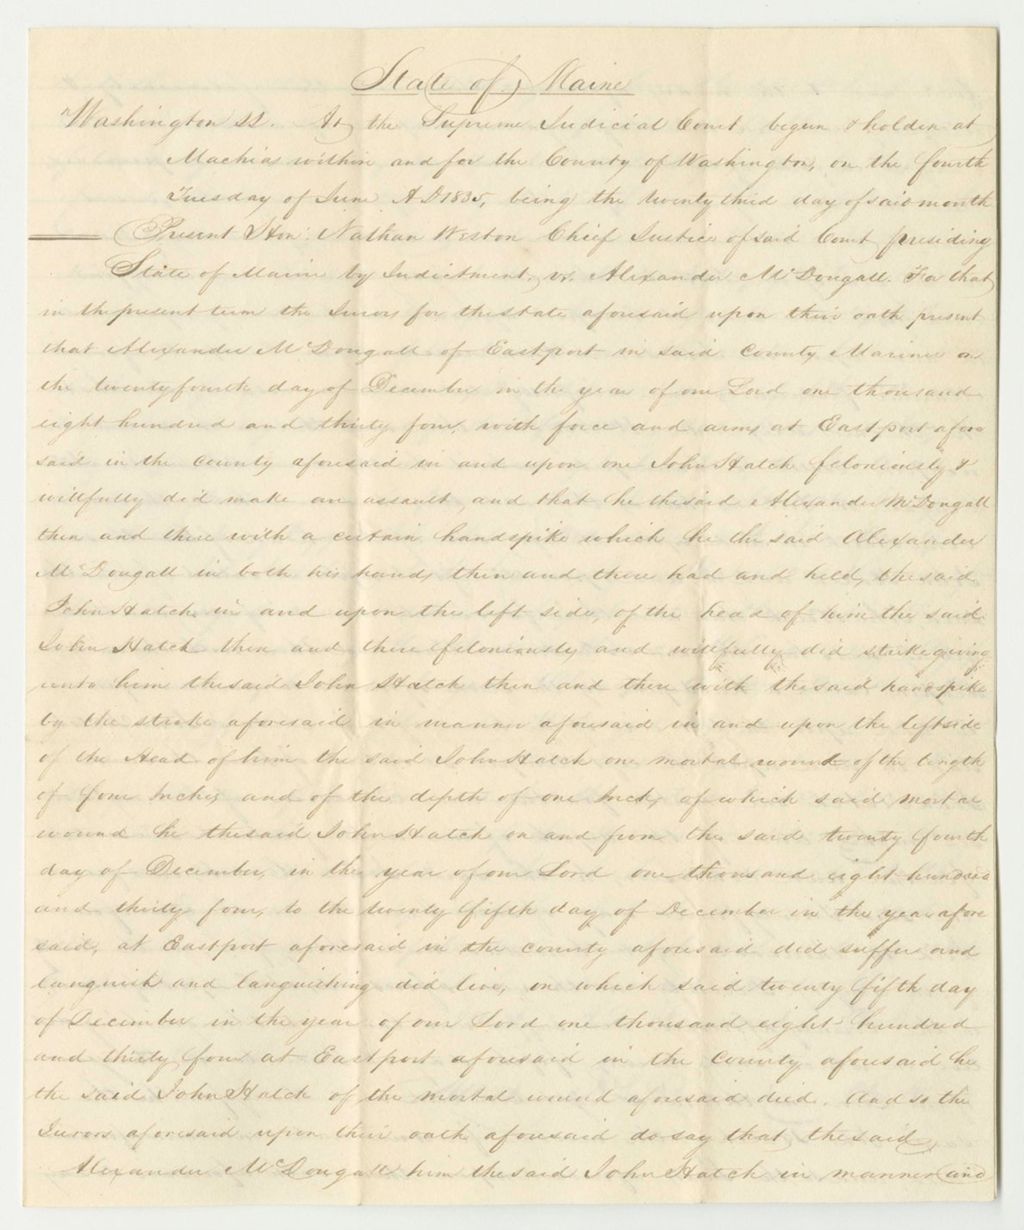 State of Maine
Washington ss. At the Supreme Judicial Court begun & holden at
Machias within and for the County of Washington, on the fourth
Tuesday of June A D 1835, being the twenty third day of said month
Present Hon. Nathan Weston Chief Justice of said Court presiding
State of Maine by Indictment, vs. Alexander McDougall. For that
in the present term the Jurors for the state aforesaid upon their oath present
that Alexander McDougall of Eastport in said County, Mariner on
the twenty fourth day of December in the year of our Lord one thousand
eight hundred and thirty four, with force and arms, at Eastport afore
said in the county aforesaid in and upon one John Hatch feloniously &
willfully did make an assault, and that he the said Alexander McDougall
then and there with a certain handspike which he the said Alexander
McDougall in both his hands then and there had and held, the said
John Hatch in and upon the left side, of the head of him the said
John Hatch then and there feloniously and willfully did strike giving
unto him the said John Hatch then and there with the said handspike
by the stroke aforesaid in manner aforesaid in and upon the left side
of the Head of him the said John Hatch one mortal wound of the length
of four Inches and of the depth of one Inch, of which said mortal
wound he the said John Hatch on and from the said twenty fourth
day of December, in the year of our Lord one thousand eight hundred
and thirty four, to the twenty fifth day of December in the year afore
said, at Eastport aforesaid in the county aforesaid did suffer and
languish and languishing did live, on which said twenty fifth day
of December in the year of our Lord one thousand eight hundred
and thirty four at Eastport aforesaid in the County aforesaid he
the said John Hatch of the mortal wound aforesaid died. And so the
Jurors aforesaid upon their oath aforesaid do say that the said,
Alexander McDougall him the said John Hatch in manner and